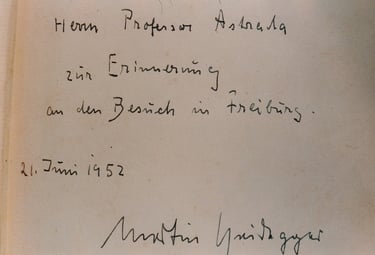 Herrn Professor Astrada
zur Erinnerung
an den Besuch in Freiburg.
21. Juni 1952
Martin Heidegger